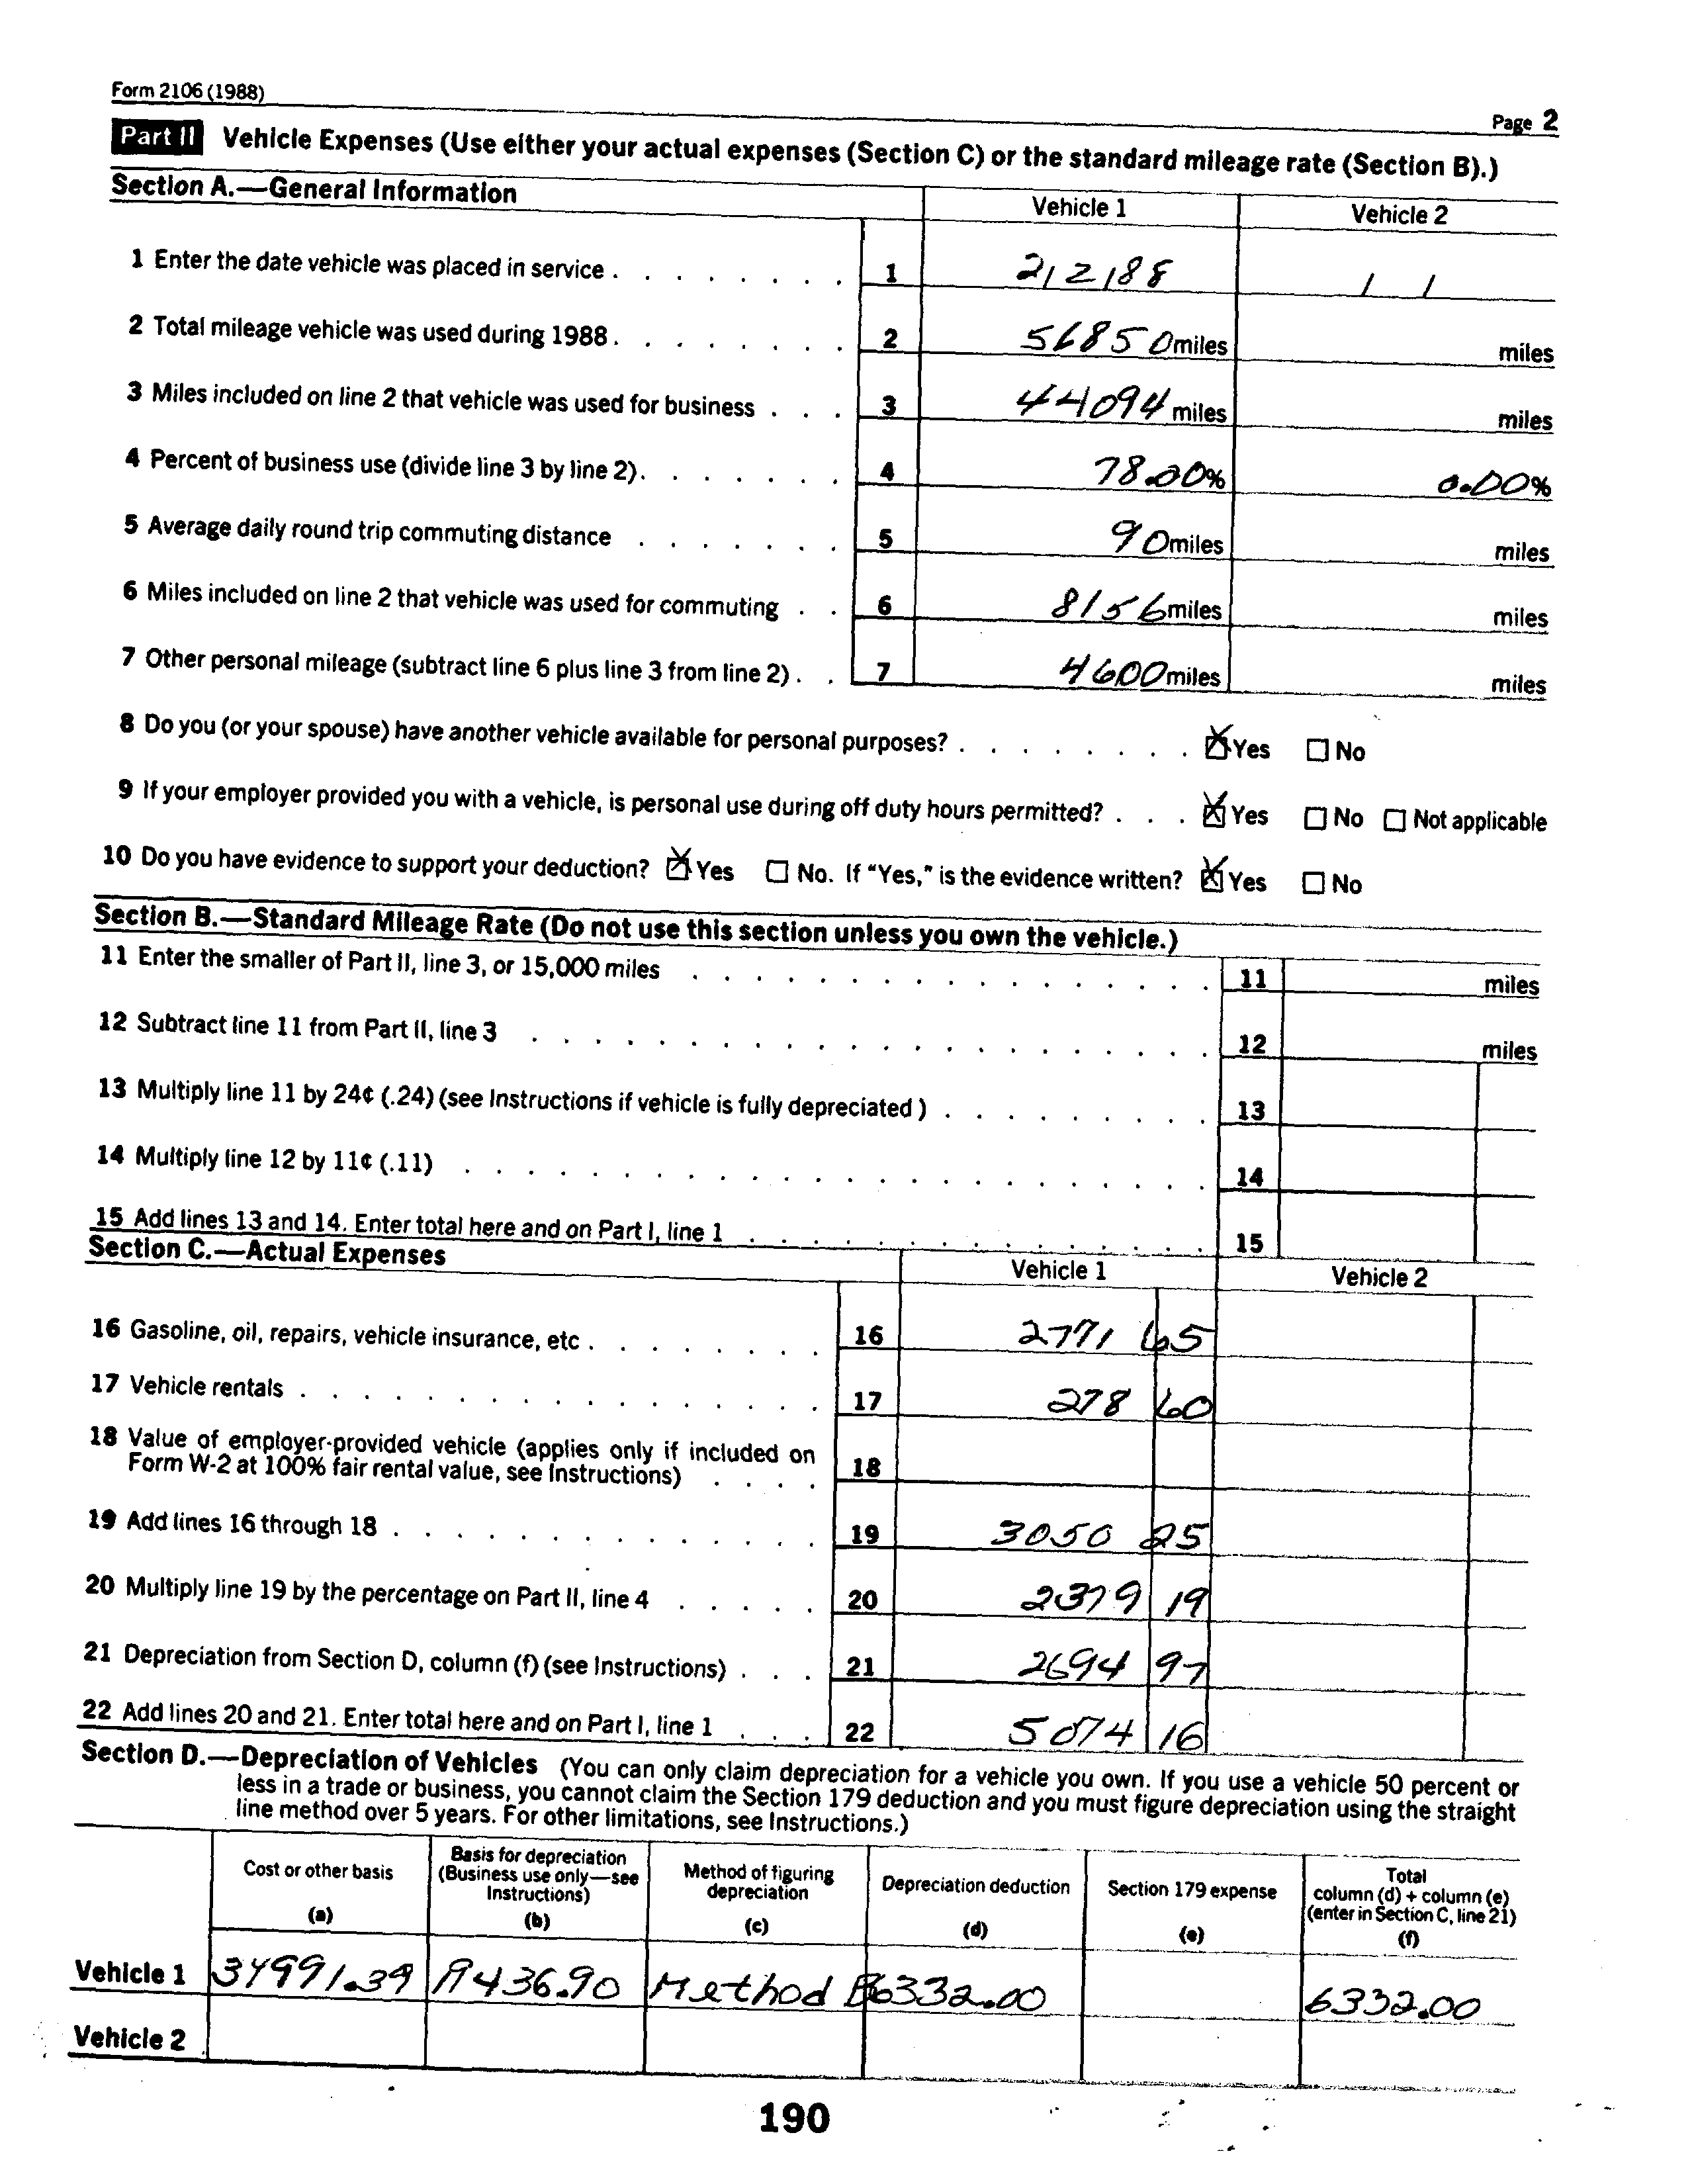 Form 2106 (1988)
Page 2
Part II Vehicle Expenses (Use either your actual expenses (Section C) or the standard mileage rate (Section B).)
Section A.—General Information
Vehicle 1 Vehicle 2
1 Enter the date vehicle was placed in service . . . . . . . . 1 2/2/88 / /
2 Total mileage vehicle was used during 1988 . . . . . . . . 2 56850 miles miles
3 Miles included on line 2 that vehicle was used for business . . . 3 44094 miles miles
4 Percent of business use (divide line 3 by line 2) . . . . . . . 4 78.00% 0.00%
5 Average daily round trip commuting distance . . . . . . . 5 90 miles miles
6 Miles included on line 2 that vehicle was used for commuting . . 6 8156 miles miles
7 Other personal mileage (subtract line 6 plus line 3 from line 2) . . 7 4600 miles miles
8 Do you (or your spouse) have another vehicle available for personal purposes? . . . . . . . . ☒ Yes ☐ No
9 If your employer provided you with a vehicle, is personal use during off duty hours permitted? . . . ☒ Yes ☐ No ☐ Not applicable
10 Do you have evidence to support your deduction? ☒ Yes ☐ No. If "Yes," is the evidence written? ☒ Yes ☐ No
Section B.—Standard Mileage Rate (Do not use this section unless you own the vehicle.)
11 Enter the smaller of Part II, line 3, or 15,000 miles . . . . . . . . . . . . . . . . . 11 miles
12 Subtract line 11 from Part II, line 3 . . . . . . . . . . . . . . . . . . . . . . 12 miles
13 Multiply line 11 by 24¢ (.24) (see Instructions if vehicle is fully depreciated ) . . . . . . . . . 13
14 Multiply line 12 by 11¢ (.11) . . . . . . . . . . . . . . . . . . . . . . . . 14
15 Add lines 13 and 14. Enter total here and on Part I, line 1 . . . . . . . . . . . . . . . 15
Section C.—Actual Expenses
Vehicle 1 Vehicle 2
16 Gasoline, oil, repairs, vehicle insurance, etc . . . . . . . . 16 2771 65
17 Vehicle rentals . . . . . . . . . . . . . . . . . 17 278 60
18 Value of employer-provided vehicle (applies only if included on
Form W-2 at 100% fair rental value, see Instructions) . . . . 18
19 Add lines 16 through 18 . . . . . . . . . . . . . . 19 3050 25
20 Multiply line 19 by the percentage on Part II, line 4 . . . . . 20 2379 19
21 Depreciation from Section D, column (f) (see Instructions) . . . 21 2694 97
22 Add lines 20 and 21. Enter total here and on Part I, line 1 . . . 22 5074 16
Section D.—Depreciation of Vehicles (You can only claim depreciation for a vehicle you own. If you use a vehicle 50 percent or
less in a trade or business, you cannot claim the Section 179 deduction and you must figure depreciation using the straight
line method over 5 years. For other limitations, see Instructions.)
Cost or other basis (a)
Basis for depreciation (Business use only—see Instructions) (b)
Method of figuring depreciation (c)
Depreciation deduction (d)
Section 179 expense (e)
Total column (d) + column (e) (enter in Section C, line 21) (f)
Vehicle 1 Method B 6332.00 6332.00
Vehicle 2
190